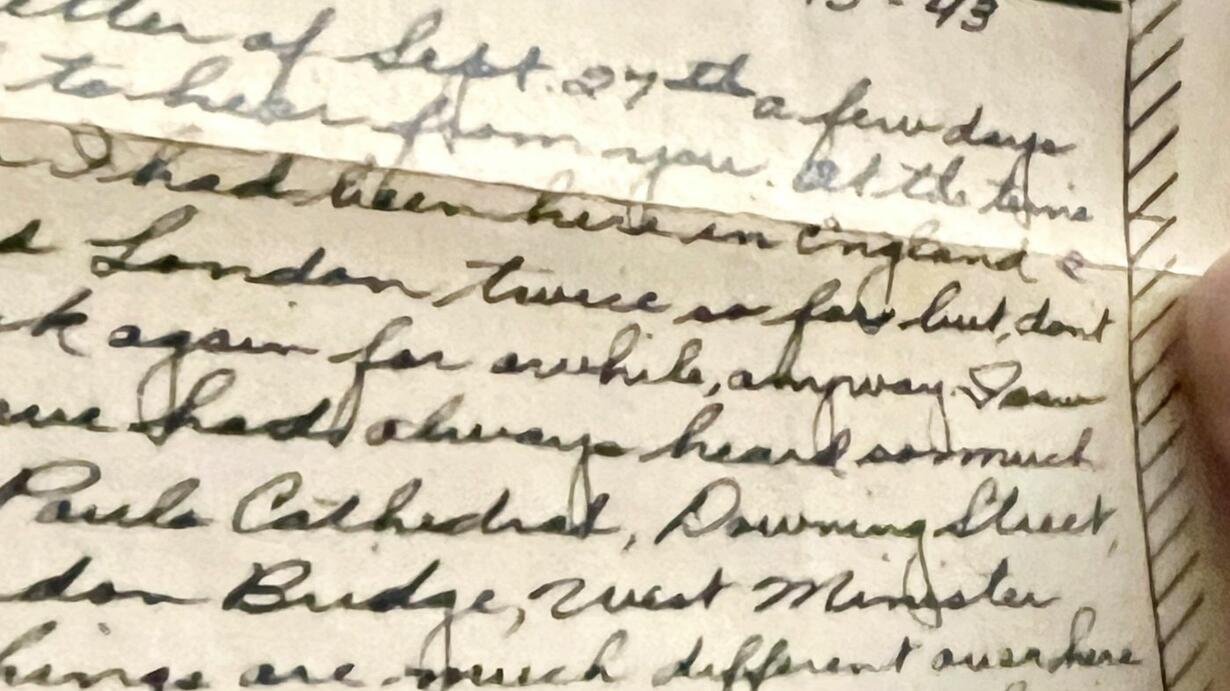 -43
etter of Sept. 27th a few days
to hear from you. At the time
I had been here in England a
London twice so far but, dont
k again for awhile, anyway I saw
we had always heard so much
Pauls Cathedral, Downing Street,
don Bridge, West Minister
hings are much different over here